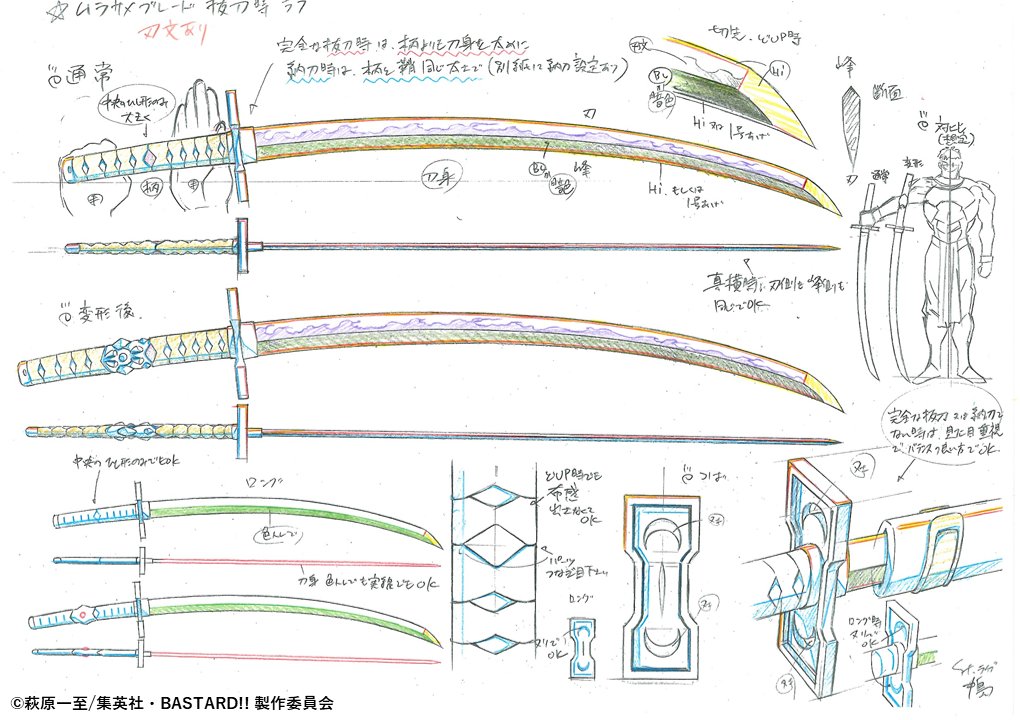 ☆ムラサメブレード 抜刀時 ラフ
刃文あり
完全な抜刀時は、柄よりも刀身を太めに
納刀時は、柄と鞘同じ太さで(別紙に納刀設定あり)
通常
中央のひし形のみ
大きく
柄
刃
刀身
峰
Hi もしくは
1号あげ
切先、どUP時
刃文
Hi
BL
暗色
Hi又は
1号あげ
峰
断面
刃
対比
(想定)
通常
変形
真横時は刃側も峰側も
同じでOK
変形後
完全な抜刀又は納刀で
ない時は、見た目重視
で、バランスの良い方でOK
中央のひし形のみでもOK
ロング
色トレで
刀身 色トレでも実線でもOK
どUP時でも
布感
出さなくて
OK
パーツ
つなぎ目下
つば
ロング
ヌリで
OK
ロング時
ヌリで
OK
©萩原一至/集英社・BASTARD!! 製作委員会